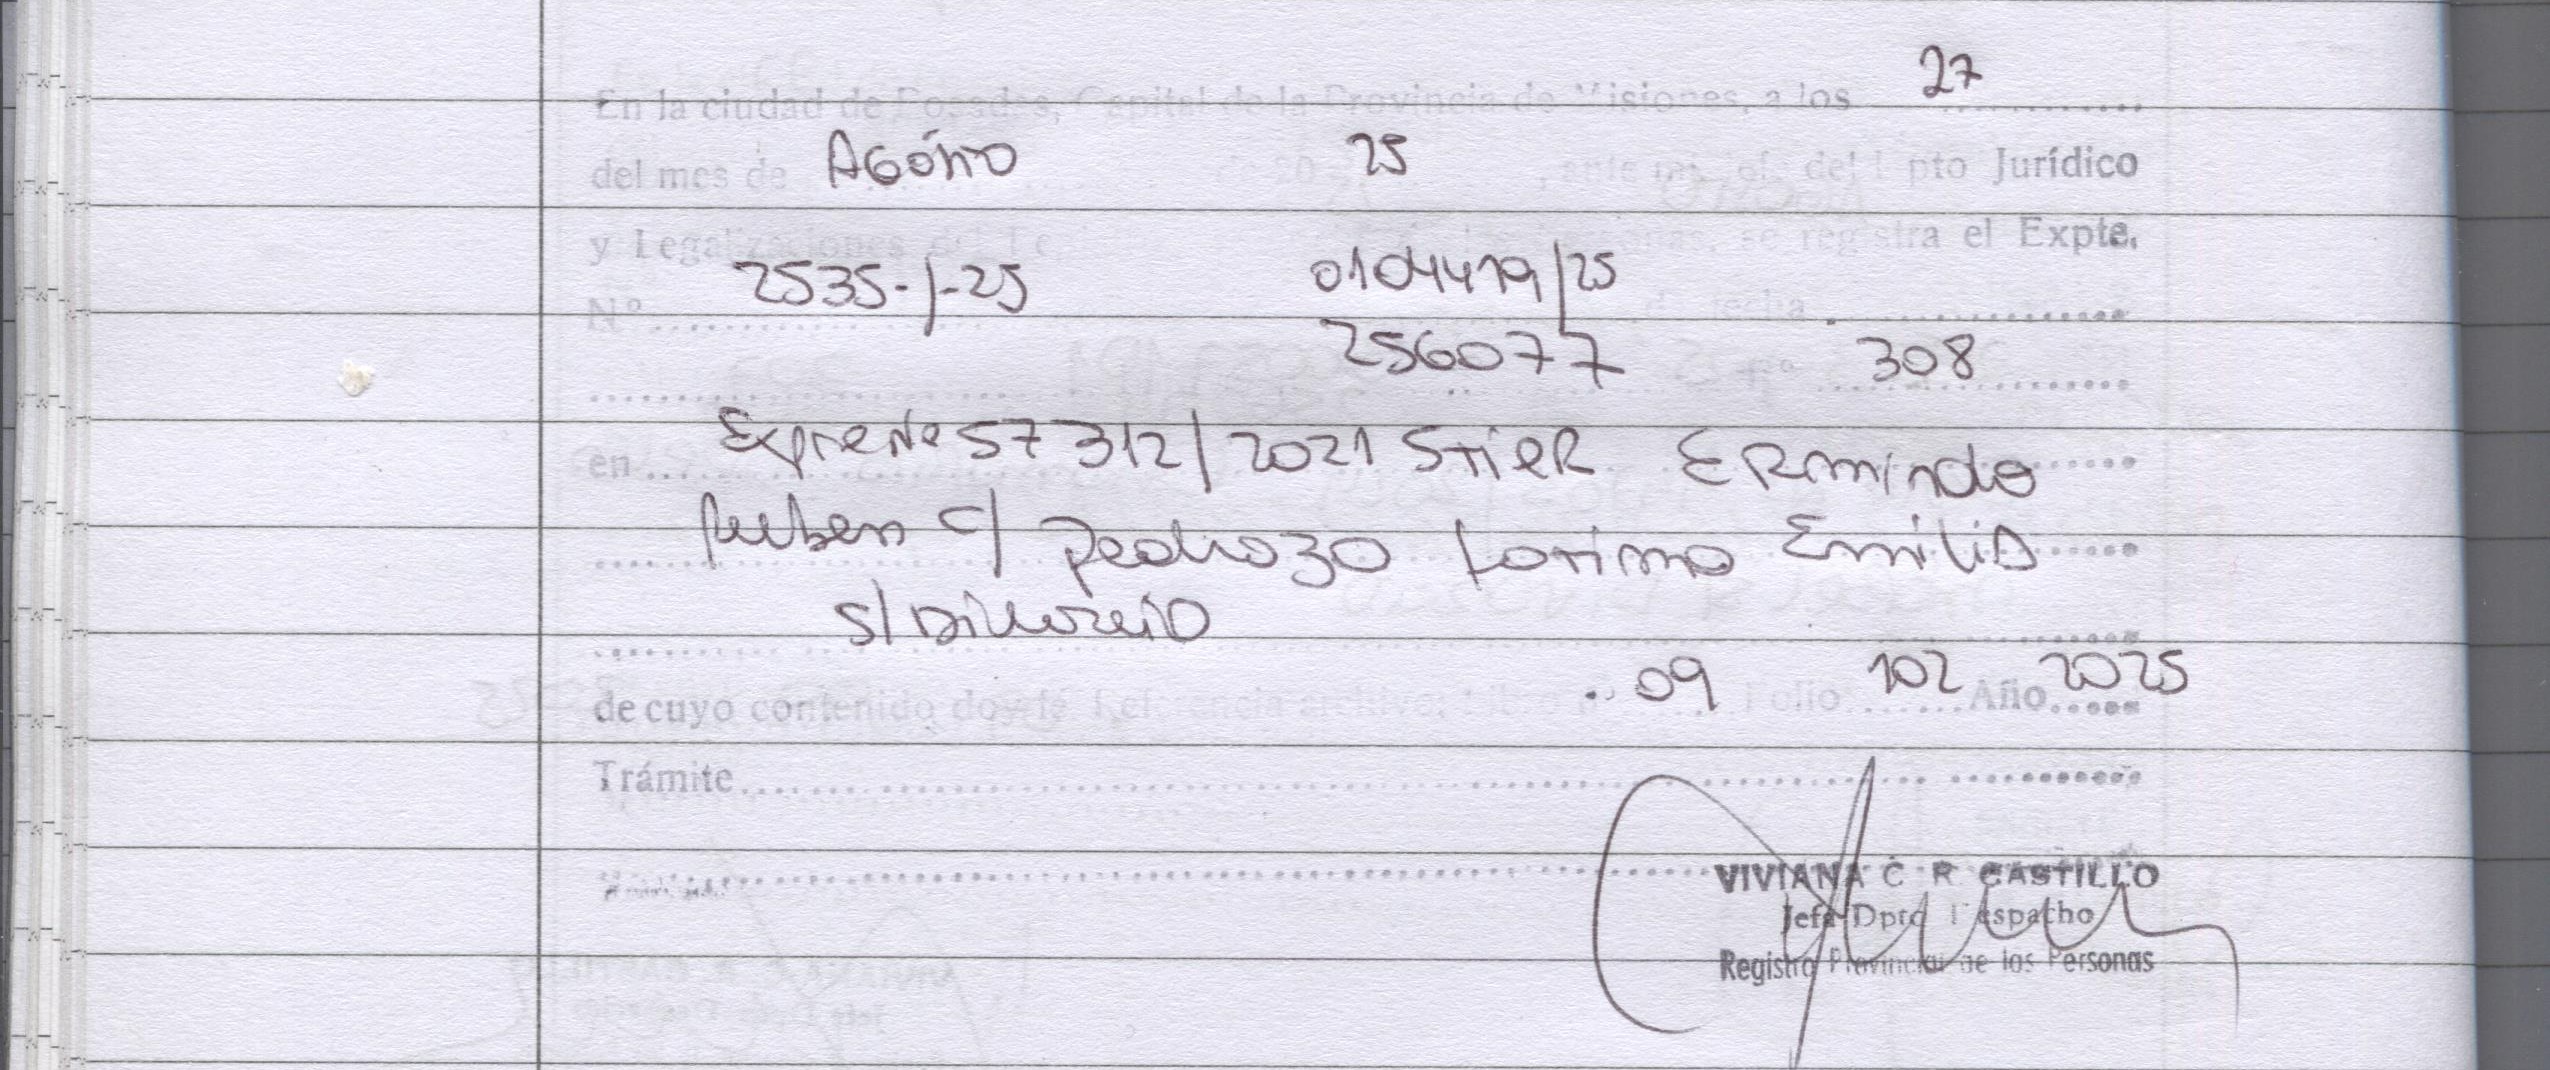 27
En la ciudad de Posadas, Capital de la Provincia de Misiones, a los ..............
Agosto 25
del mes de 20 , ante mi, of. del Dpto Jurídico
y Legalizaciones del se registra el Expte.
2535-/-25 0104479/25
Nº.............. de fecha ..............
256077 308
Expiente 57312/2021 Stier Ermindo
en..............
Ruben c/ Pedrozo Emilia
s/ Divorcio
09 102 2025
de cuyo contenido doy fe Referencia archivo: Libro ....... Folio.......Año......
Trámite..............
VIVIANA C R CASTILLO
Jefa Dpto Despacho
Registro Provincial de las Personas